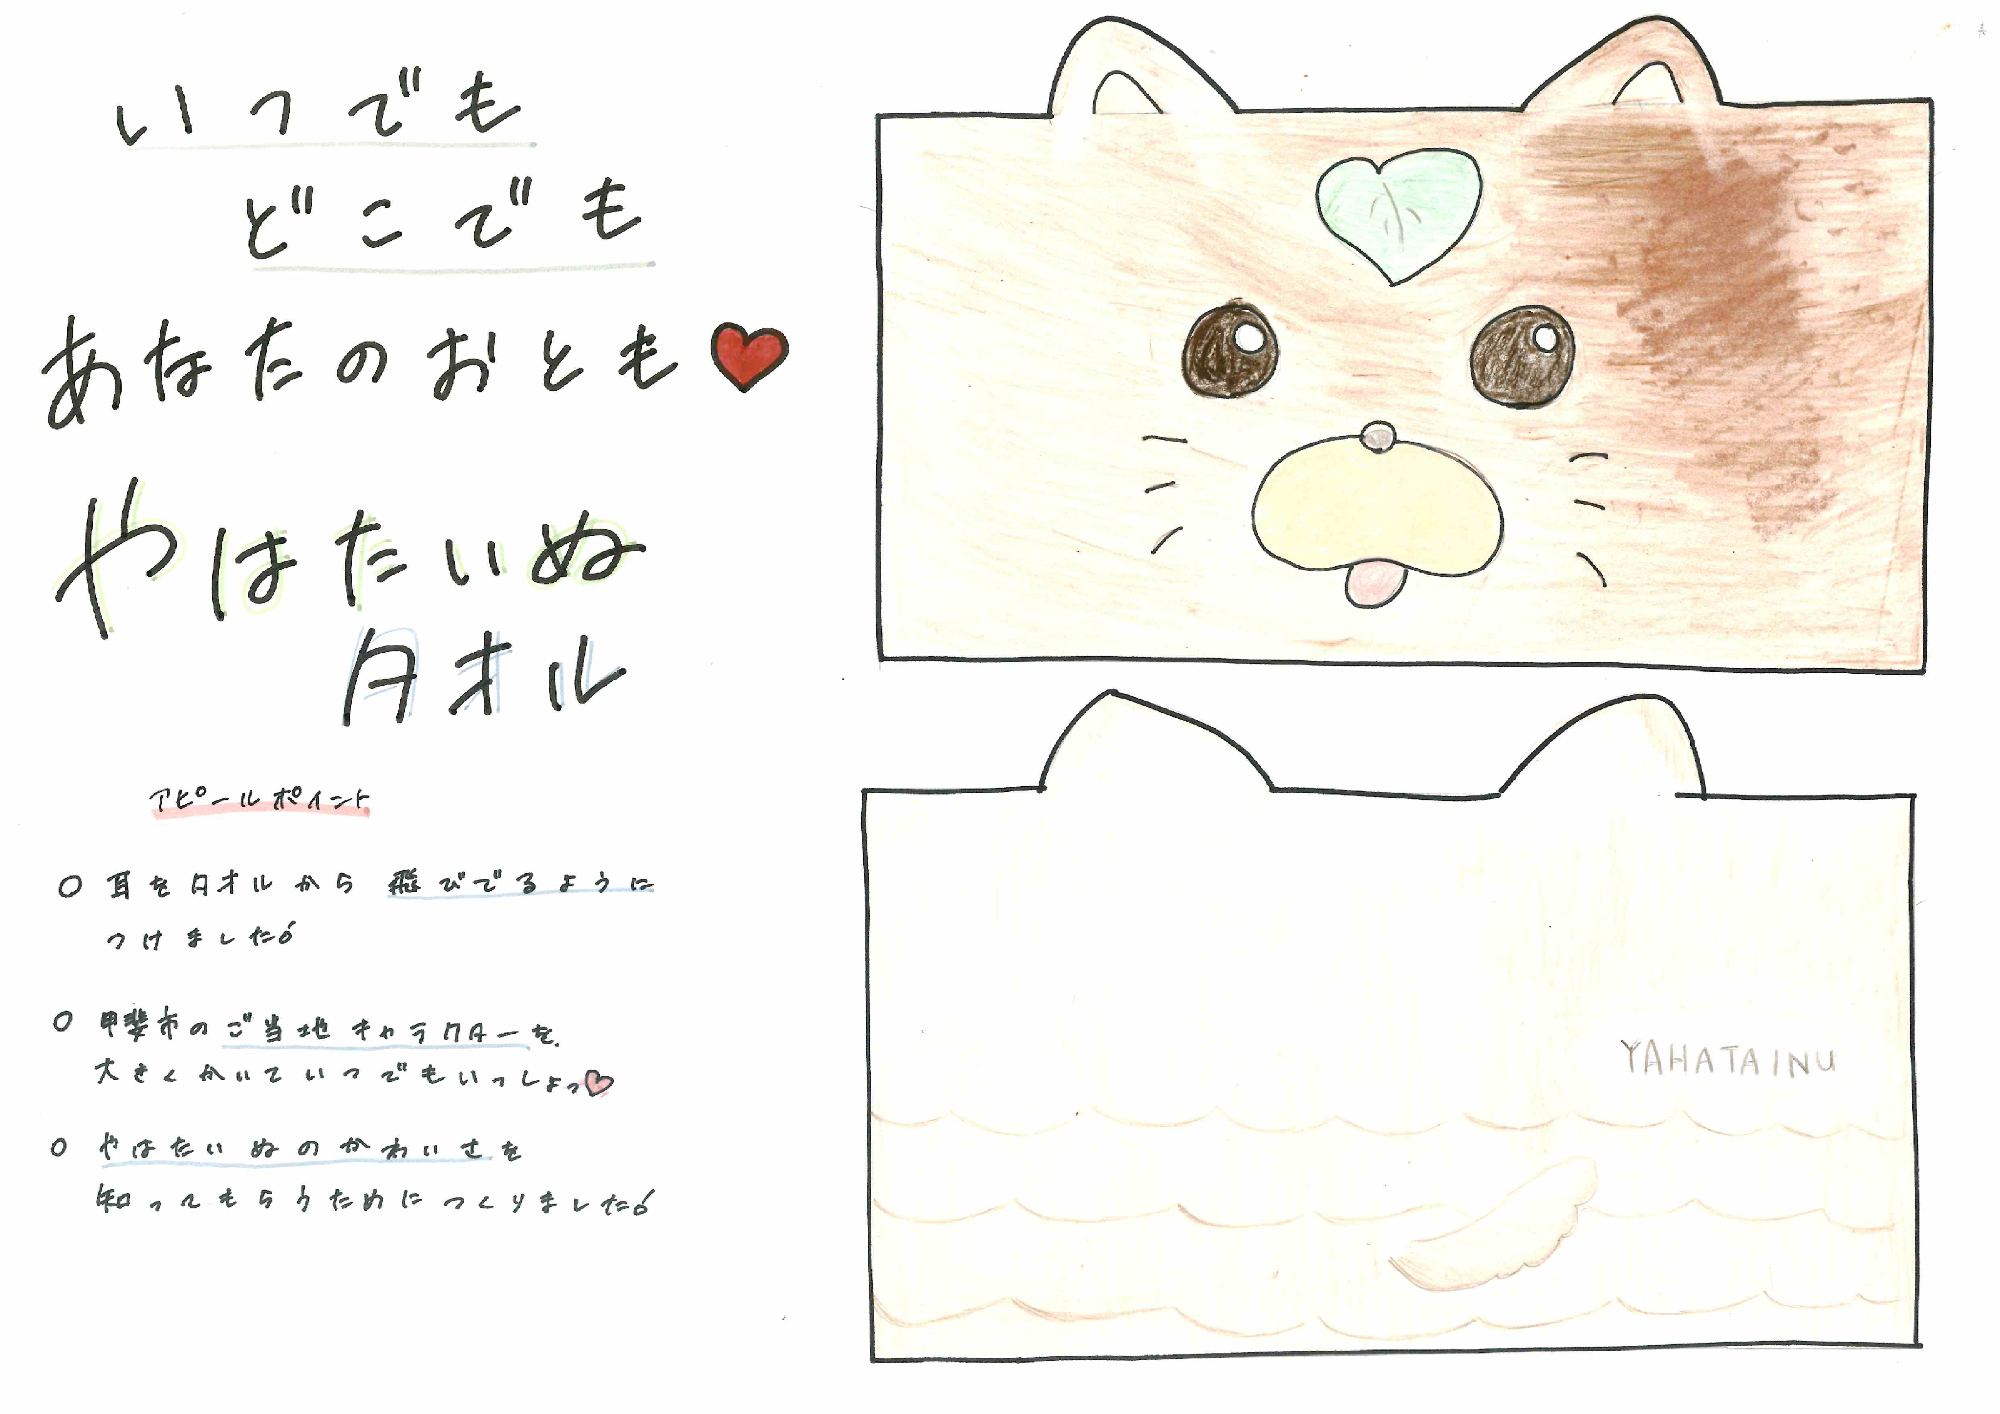 いつでも
どこでも
あなたのおとも♥
やはたいぬ
タオル
アピールポイント
○ 耳をタオルから飛びでるように
つけました!
○ 甲斐市のご当地キャラクターを
大きくかいていつでもいっしょっ♡
○ やはたいぬのかわいさを
知ってもらうためにつくりました!
YAHATAINU